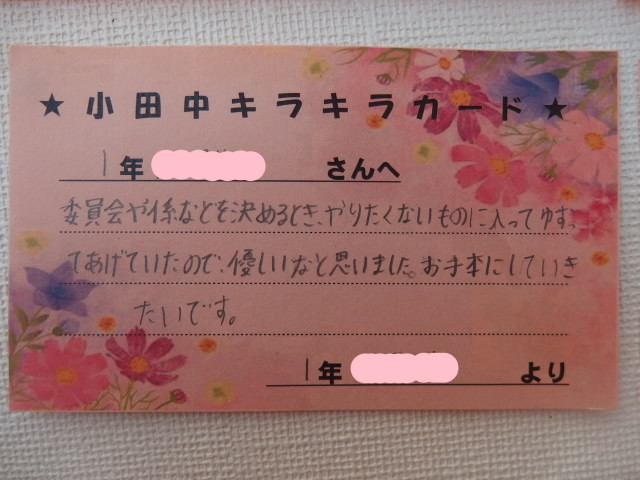 ★小田中キラキラカード★
1年 さんへ
委員会や係などを決めるとき、やりたくないものに入ってゆずっ
てあげていたので、優しいなと思いました。お手本にしていき
たいです。
1年 より